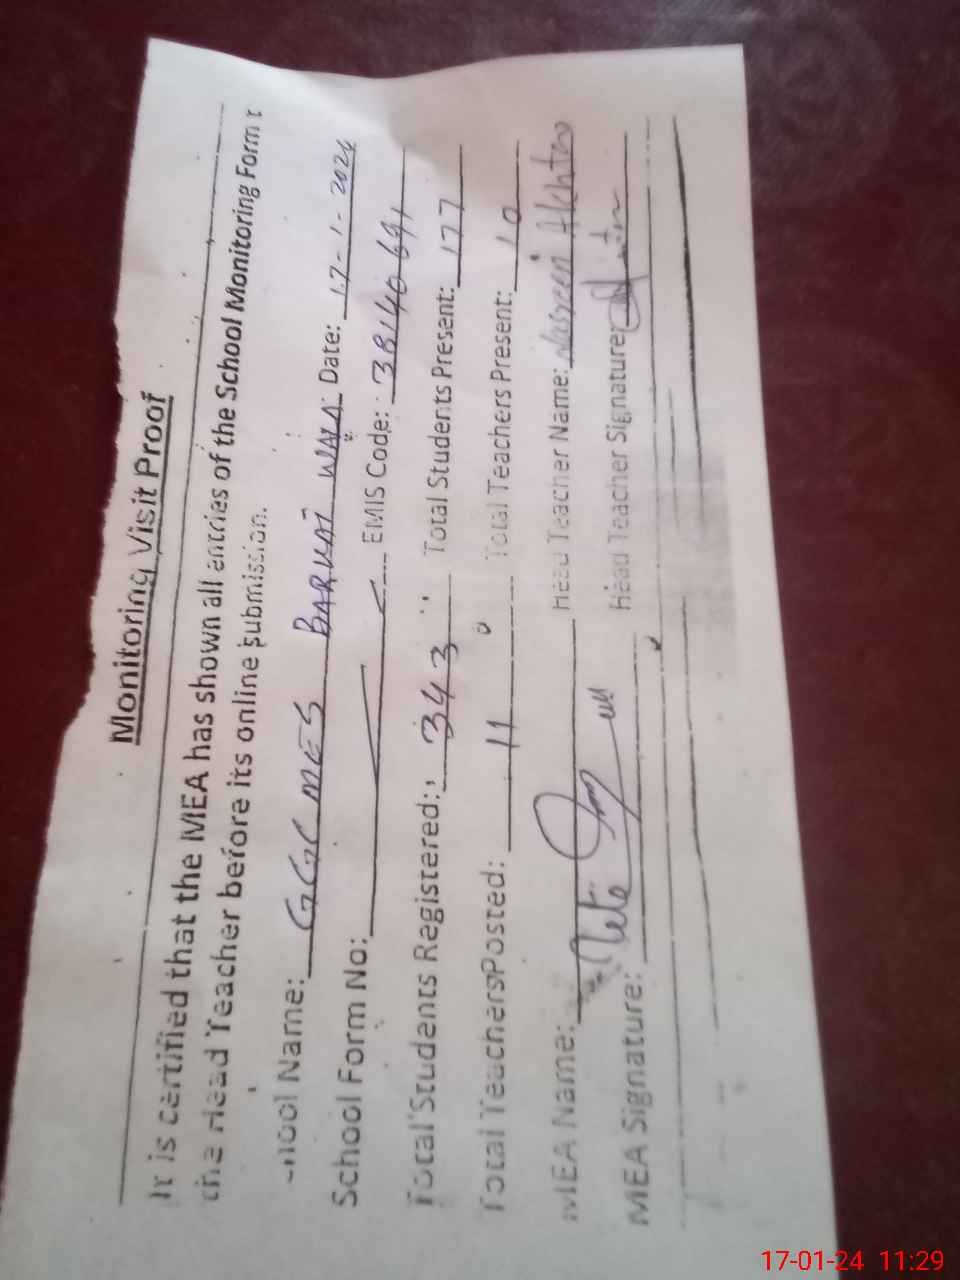 Monitoring Visit Proof
It is certified that the MEA has shown all entries of the School Monitoring Form t
the Head Teacher before its online submission.
hool Name: GGCMES BARKAT WALA Date: 17-1-2024
School Form No: EMIS Code: 38140691
Total Students Registered: 343 Total Students Present: 177
Total Teachers Posted: 11 Total Teachers Present: 10
MEA Name: Head Teacher Name: Nasreen Akhtar
MEA Signature: Head Teacher Signature:
17-01-24 11:29